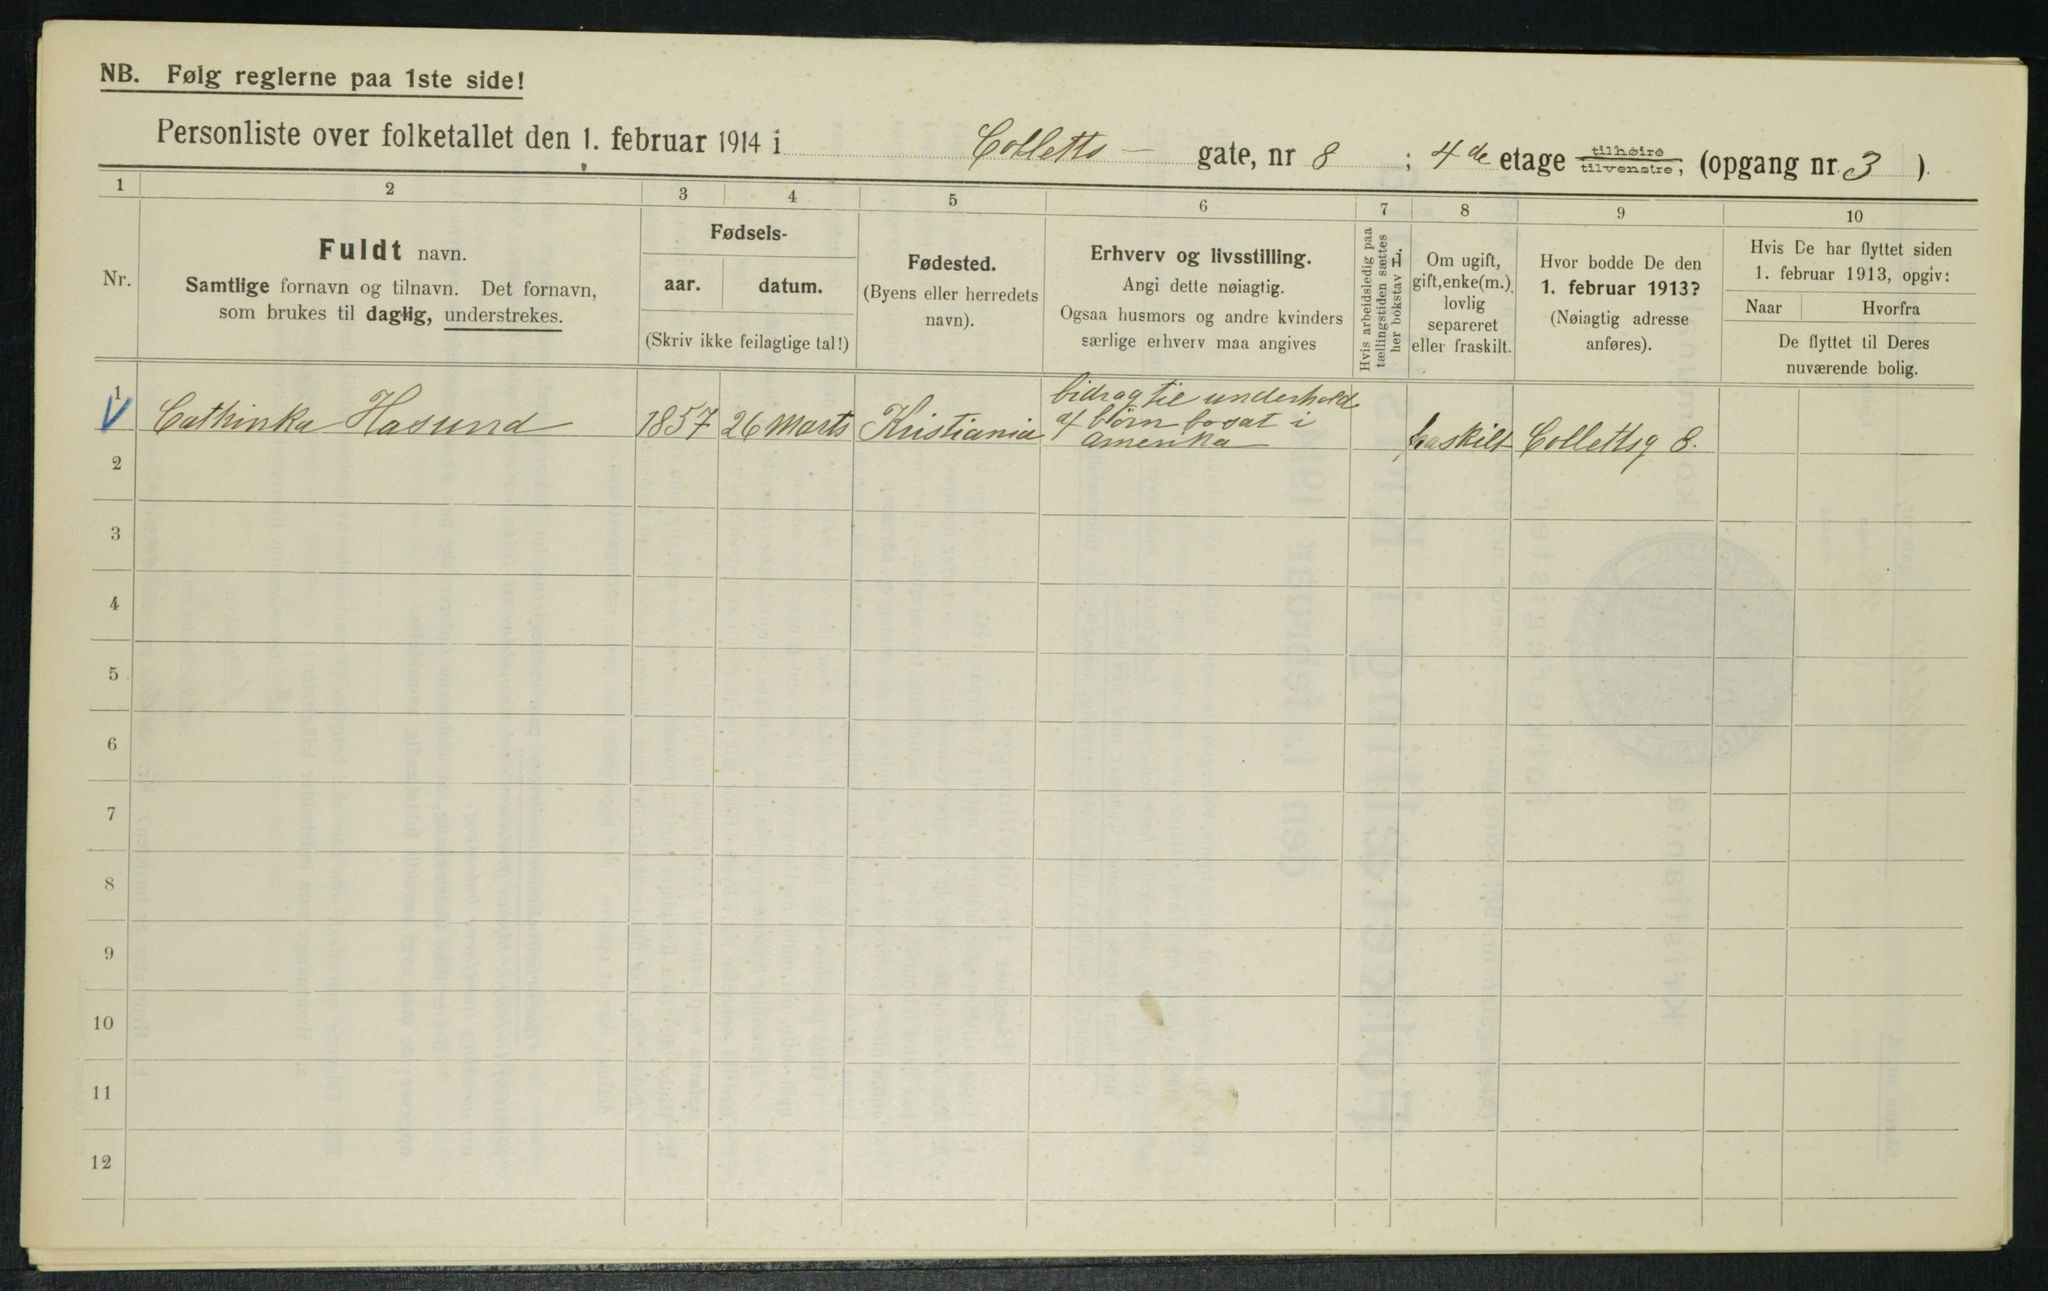 NB. Følg reglerne paa 1ste side!
Personliste over folketallet den 1. februar 1914 i Colletts — gate, nr 8 ; 4de etage tilhøire / tilvenstre, (opgang nr. 3 ).
1 2 3 4 5 6 7 8 9 10
Nr.
Fuldt navn.
Samtlige fornavn og tilnavn. Det fornavn,
som brukes til daglig, understrekes.
Fødsels-
aar. datum.
(Skriv ikke feilagtige tal!)
Fødested.
(Byens eller herredets
navn).
Erhverv og livsstilling.
Angi dette nøiagtig.
Ogsaa husmors og andre kvinders
særlige erhverv maa angives
Hvis arbeidsledig paa
tællingstiden sættes
her bokstav L.
Om ugift,
gift, enke(m.),
lovlig
separeret
eller fraskilt.
Hvor bodde De den
1. februar 1913?
(Nøiagtig adresse
anføres).
Hvis De har flyttet siden
1. februar 1913, opgiv:
Naar Hvorfra
De flyttet til Deres
nuværende bolig.
1 V Cathinka Hasund 1857 26 Marts Kristiania
bidrag til underhold
af børn bosat i
Amerika
fraskilt Collettsg 8.
2
3
4
5
6
7
8
9
10
11
12